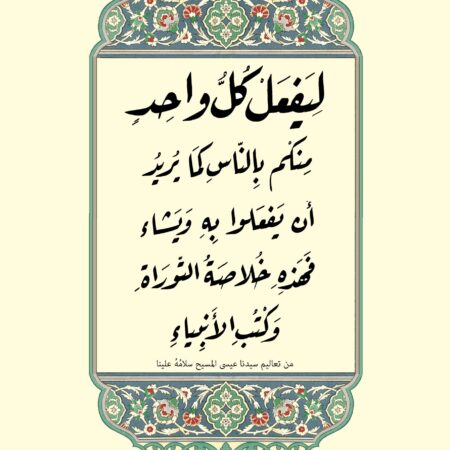 لِيَفعَلْ كُلُّ واحِدٍ
مِنكُم بِالنّاسِ كَمَا يُرِيدُ
أَن يَفعَلوا بِهِ وَيَشاء
فَهَذِهِ خُلاصَةُ التَّورَاةِ
وَكُتُبِ الأَنبِياءِ
من تعاليم سيدنا عيسى المسيح سلامُهُ علينا